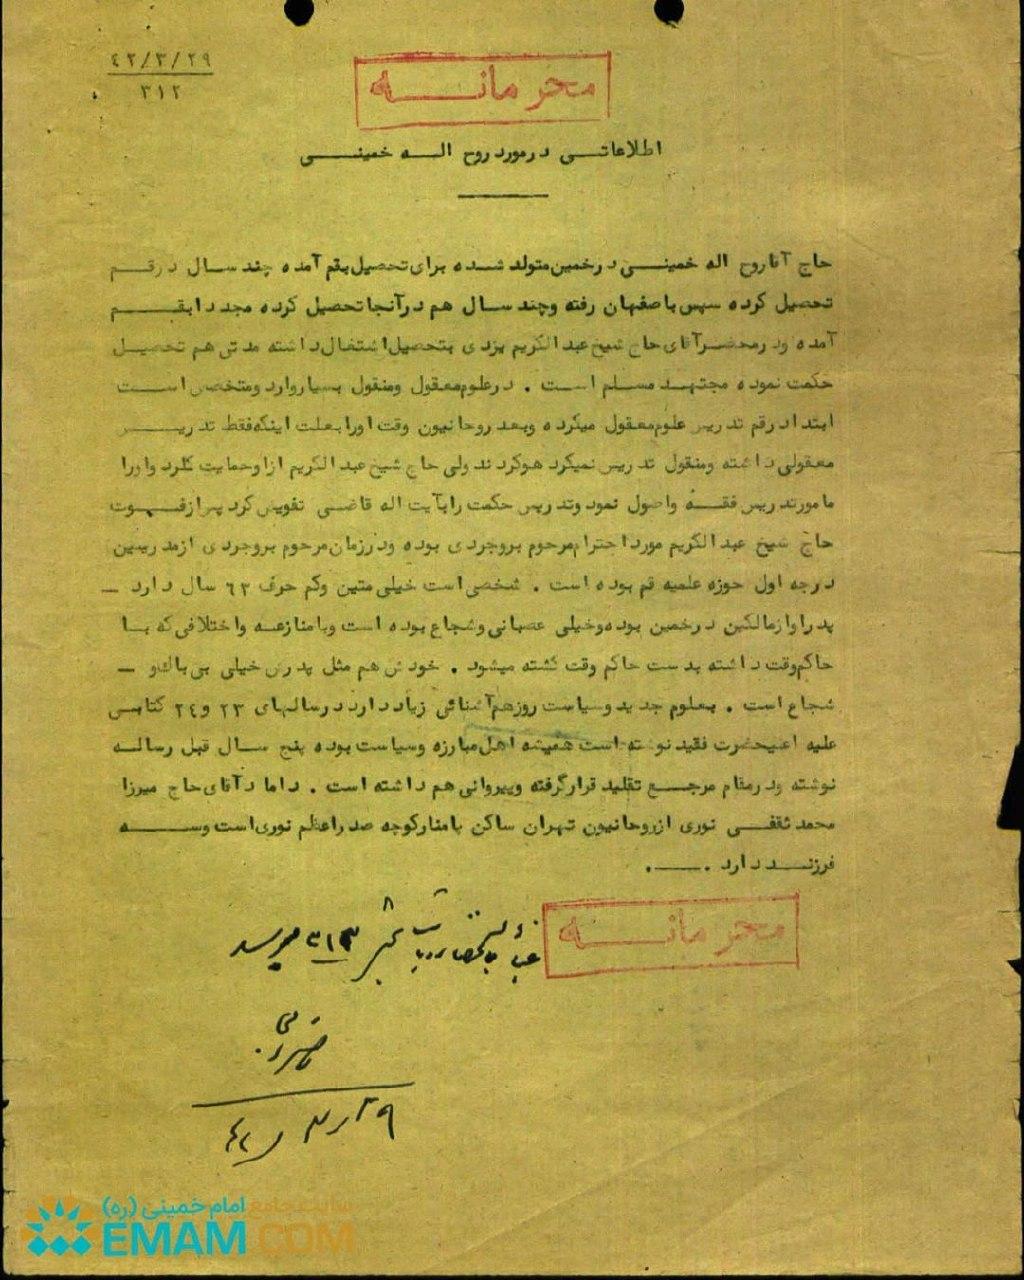 ٤٢/٣/٢٩
٣١٢
محرمانه
اطلاعاتی در مورد روح اله خمینی
حاج آقا روح اله خمینی در خمین متولد شده برای تحصیل بقم آمده چند سال در قم
تحصیل کرده سپس باصفهان رفته و چند سال هم در آنجا تحصیل کرده مجدد ا بقم
آمده و در محضر آقای حاج شیخ عبد الکریم یزدی بتحصیل اشتغال داشته مدتی هم تحصیل
حکمت نموده مجتهد مسلم است . در علوم معقول و منقول بسیار وارد و متخصص است
ابتدا در قم تدریس علوم معقول میکرده و بعد روحانیون وقت او را بعلت اینکه فقط تدریس
معقولی داشته و منقول تدریس نمیکرد هو کردند ولی حاج شیخ عبد الکریم از او حمایت کرد و او را
مامور تدریس فقه و اصول نمود و تدریس حکمت را بآیت اله قاضی تفویض کرد پس از فوت
حاج شیخ عبد الکریم مورد احترام مرحوم بروجردی بوده و در زمان مرحوم بروجردی از مدرسین
درجه اول حوزه علمیه قم بوده است . شخصی است خیلی متین و کم حرف ٦٣ سال دارد –
پدر او از مالکین در خمین بوده و خیلی عصبانی و شجاع بوده است و با منازعه و اختلافی که با
حاکم وقت داشته بدست حاکم وقت کشته میشود . خودش هم مثل پدرش خیلی بی باک و –
شجاع است . بعلوم جدید و سیاست روز هم آشنائی زیاد دارد در سالهای ٢٣ و ٢٤ کتابی
علیه اعلیحضرت فقید نوشته است همیشه اهل مبارزه و سیاست بوده پنج سال قبل رساله
نوشته و در مقام مرجع تقلید قرار گرفته و پیروانی هم داشته است . داماد آقای حاج میرزا
محمد ثقفی نوری از روحانیون تهران ساکن پامنار کوچه صدر اعظم نوری است و سه
فرزند دارد .ــــ.
محرمانه
٣١٣ میرسد
٤٢/٣/٢٩
سایت جامع امام خمینی (ره)
EMAM.COM